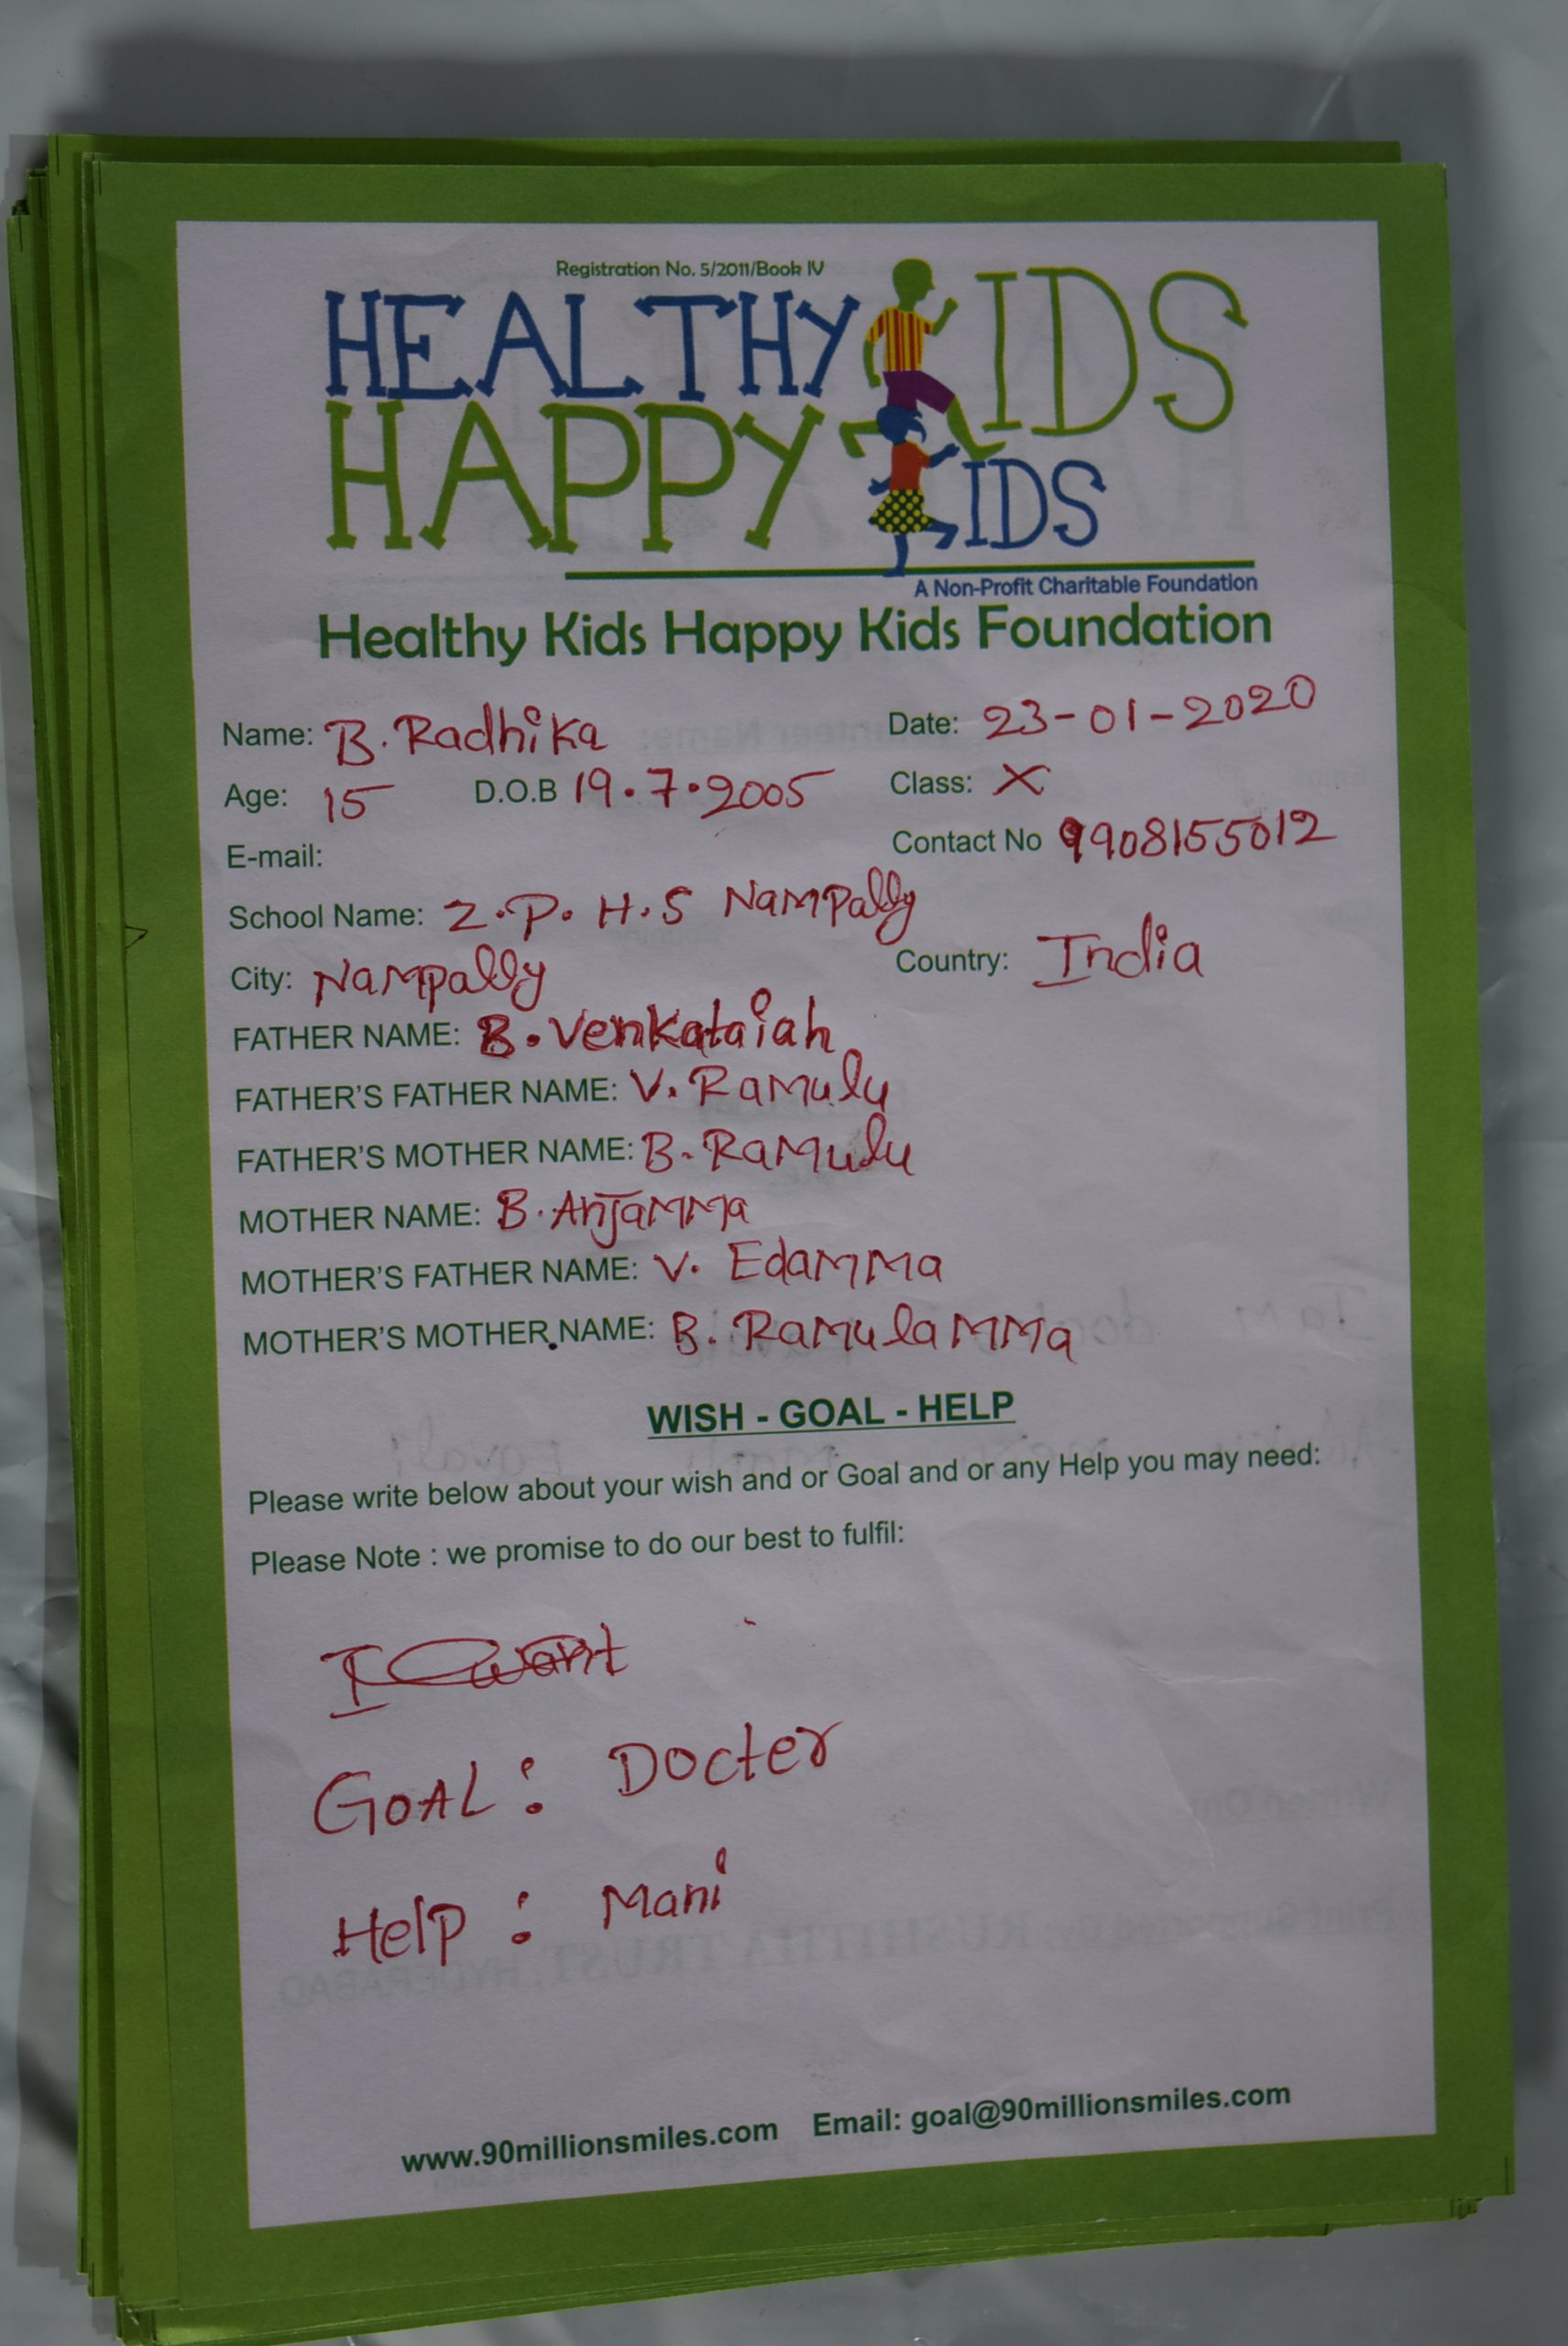 Registration No. 5/2011/Book IV
HEALTHY KIDS
HAPPY KIDS
A Non-Profit Charitable Foundation
Healthy Kids Happy Kids Foundation
Name: B. Radhika Date: 23-01-2020
Age: 15 D.O.B 19.7.2005 Class: X
E-mail: Contact No 9908155012
School Name: Z.P. H.S Nampally
City: Nampally Country: India
FATHER NAME: B. Venkataiah
FATHER'S FATHER NAME: V. Ramulu
FATHER'S MOTHER NAME: B. Ramulu
MOTHER NAME: B. Anjamma
MOTHER'S FATHER NAME: V. Edamma
MOTHER'S MOTHER NAME: B. Ramulamma
WISH - GOAL - HELP
Please write below about your wish and or Goal and or any Help you may need:
Please Note : we promise to do our best to fulfil:
I want
GOAL : Docter
Help : Mani
www.90millionsmiles.com Email: goal@90millionsmiles.com